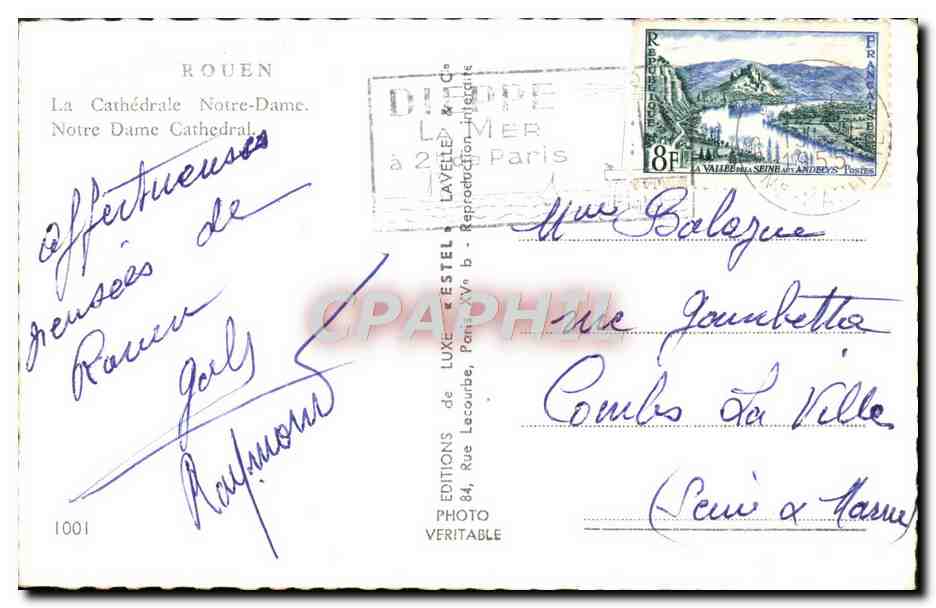 ROUEN
La Cathédrale Notre-Dame.
Notre Dame Cathedral.
affectueuses
pensées de
Rouen
Raymond
1001
EDITIONS de LUXE "ESTEL" LAVELLE & Cie
84, Rue Lecourbe, Paris XVe b - Reproduction interdite
PHOTO
VERITABLE
DIEPPE
LA MER
à 2h de Paris
REPUBLIQUE FRANCAISE
8F
LA VALLÉE DE LA SEINE AUX ANDELYS POSTES
1955
CPAPHIL
Mme Balazue
rue Gambetta
Combs La Ville
(Seine & Marne)